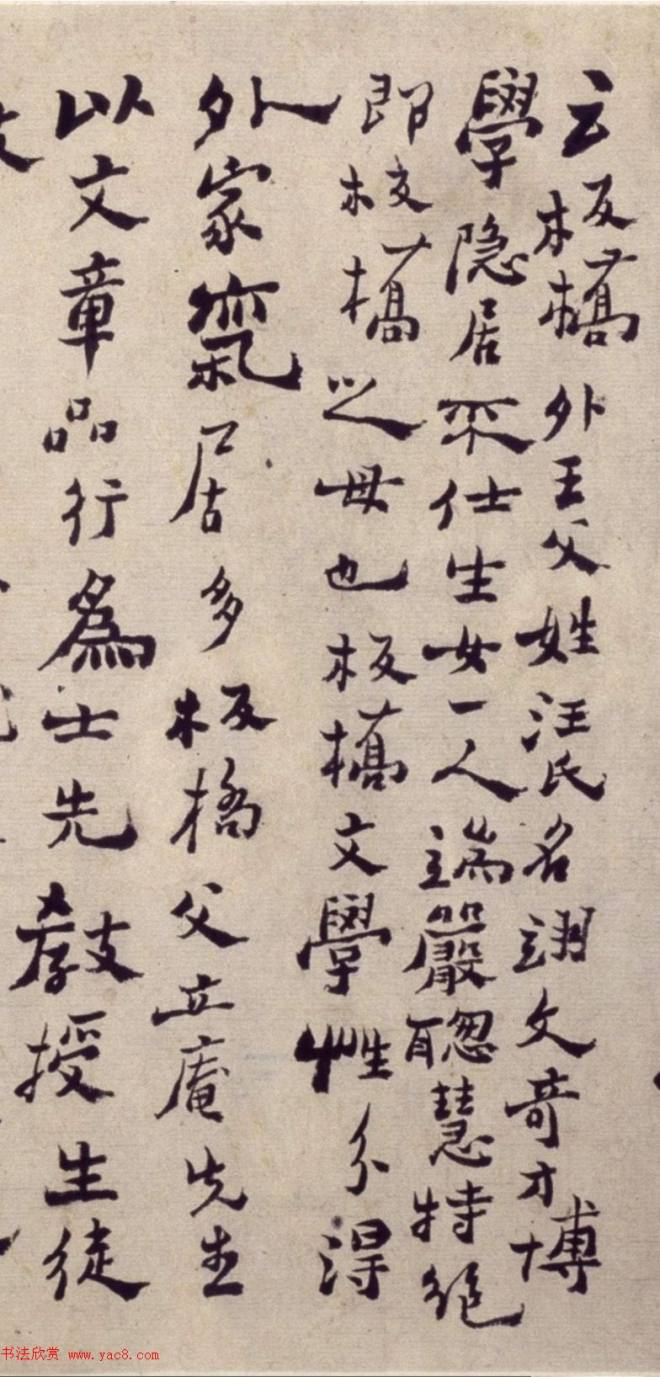 云板橋外王父姓汪氏名翊文奇才博
學隐居不仕生女一人端嚴聰慧特絶
即板橋之母也板橋文學性分得
外家氣居多板橋父立庵先生
以文章品行為士先教授生徒
书法欣赏 www.yac8.com